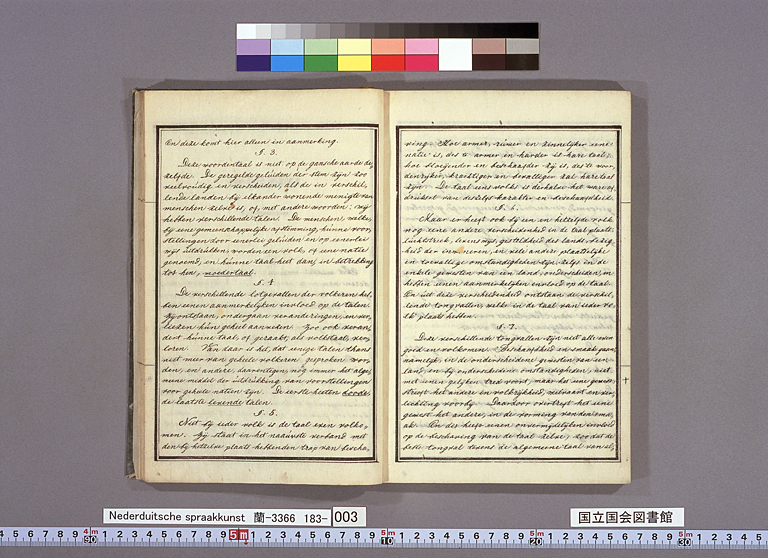 En deze komt hier alleen in aanmerking.
§. 3.
Deze woordentaal is niet op de gansche aarde de,
zelfde. De geregelde geluiden der stem zijn zoo
veelvuldig en verscheiden, als de in verschil,
lende landen bij elkander wonende menigte van
menschen zelve is, of, met andere woorden: wij
hebben verschillende talen. De menschen, welke
bij eene gemeenschappelijke afstemming, hunne voor,
stellingen door eenerlei geluiden en op eenerlei
wijs uitdrukken, worden een volk, of eene natie
genoemd, en hunne taal heet dan, in betrekking
tot hen, moedertaal.
§. 4
De verschillende lotgevallen der volkeren heb,
ben eenen aanmerkelijken invloed op de talen.
Zij ontstaan, ondergaan veranderingen, en ver,
liezen hun geheel aanzien. Zoo ook veran,
dert hunne taal, of geraakt, als volkstaal, ver,
loren. Van daar is het, dat eenige talen thans
niet meer van geheele volkeren gesproken wor,
den, en andere, daarentegen, nog immer het alge,
meene middel der uitdrukking van voorstellingen
voor geheele natien zijn. De eerste heeten doode,
de laatste levende talen.
§. 5.
Niet bij ieder volk is de taal even volko,
men. Zij staat in het naauwste verband met
den bij hetzelve plaats hebbenden trap van bescha,
ving. Hoe armer, ruwer en zinnelijker eene
natie is, des te armer en harder is hare taal;
hoe bloeijender en beschaafder zij is, des te wor,
denrijker, krachtiger en bevalliger zal hare taal
zijn. De taal eens volks is derhalve het ware af,
druksel van deszelfs karakter en beschaafdheid.
§. 6.
Maar er heeft ook bij een en hetzelfde volk
nog eene andere verscheidenheid in de taal plaats.
Luchtstreek, levenswijs, gesteldheid des lands, bezig,
heid der inwoneren, en vele andere plaatselijke
en toevallige omstandigheden zijn, zelfs in de
enkele gewesten van een land, onderscheiden, en
hebben eenen aanmerkelijken invloed op de taal.
En uit deze verscheidenheid ontstaan de verschil,
lende tongvallen, welke in de taal van ieder vo,
lk plaats hebben.
§. 7.
Deze verschillende tongvallen zijn niet alle even
goed en volkomen. De beschaafdheid en smaak gaan
namelijk, in de onderscheidene gewesten van een
land, en bij onderscheidene omstandigheden, niet
met eenen gelijken tred voort, maar het eene gewest
streeft het andere in volbrijkheid, welvaart en ver,
lichting voorbij. Daardoor overtreft het eene
gewest het andere, in de vorming van den sma,
ak. En dit heeft eenen onvermijdelijken invloed
op de beschaving van de taal zelve, zoodat de
beste tongval tevens de algemeene taal van al,
Nederduitsche spraakkunst 蘭-3366 183- 003
国立国会図書館